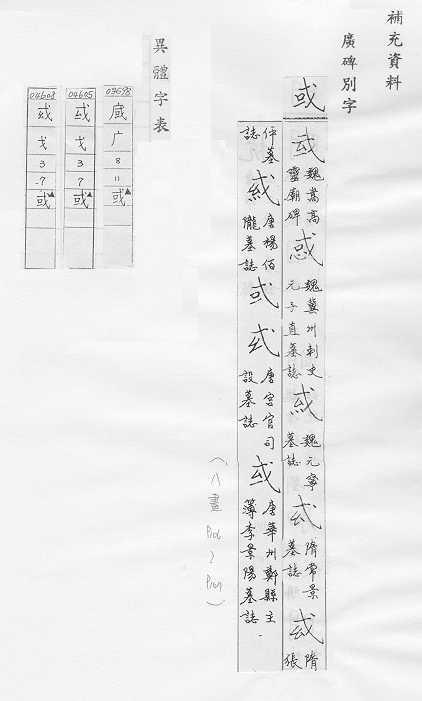 補充資料
廣碑別字
或
魏嵩高靈廟碑
魏冀州刺史元子直墓誌
魏元寧墓誌
隋常景墓誌
隋張
仵墓誌
唐楊佰隴墓誌
或
唐宮官司設墓誌
或
唐華州鄭縣主簿李景陽墓誌
(八畫
異體字表
03698
广
8
11
或▲
04605
戈
3
7
或▲
戈
3
7
或▲